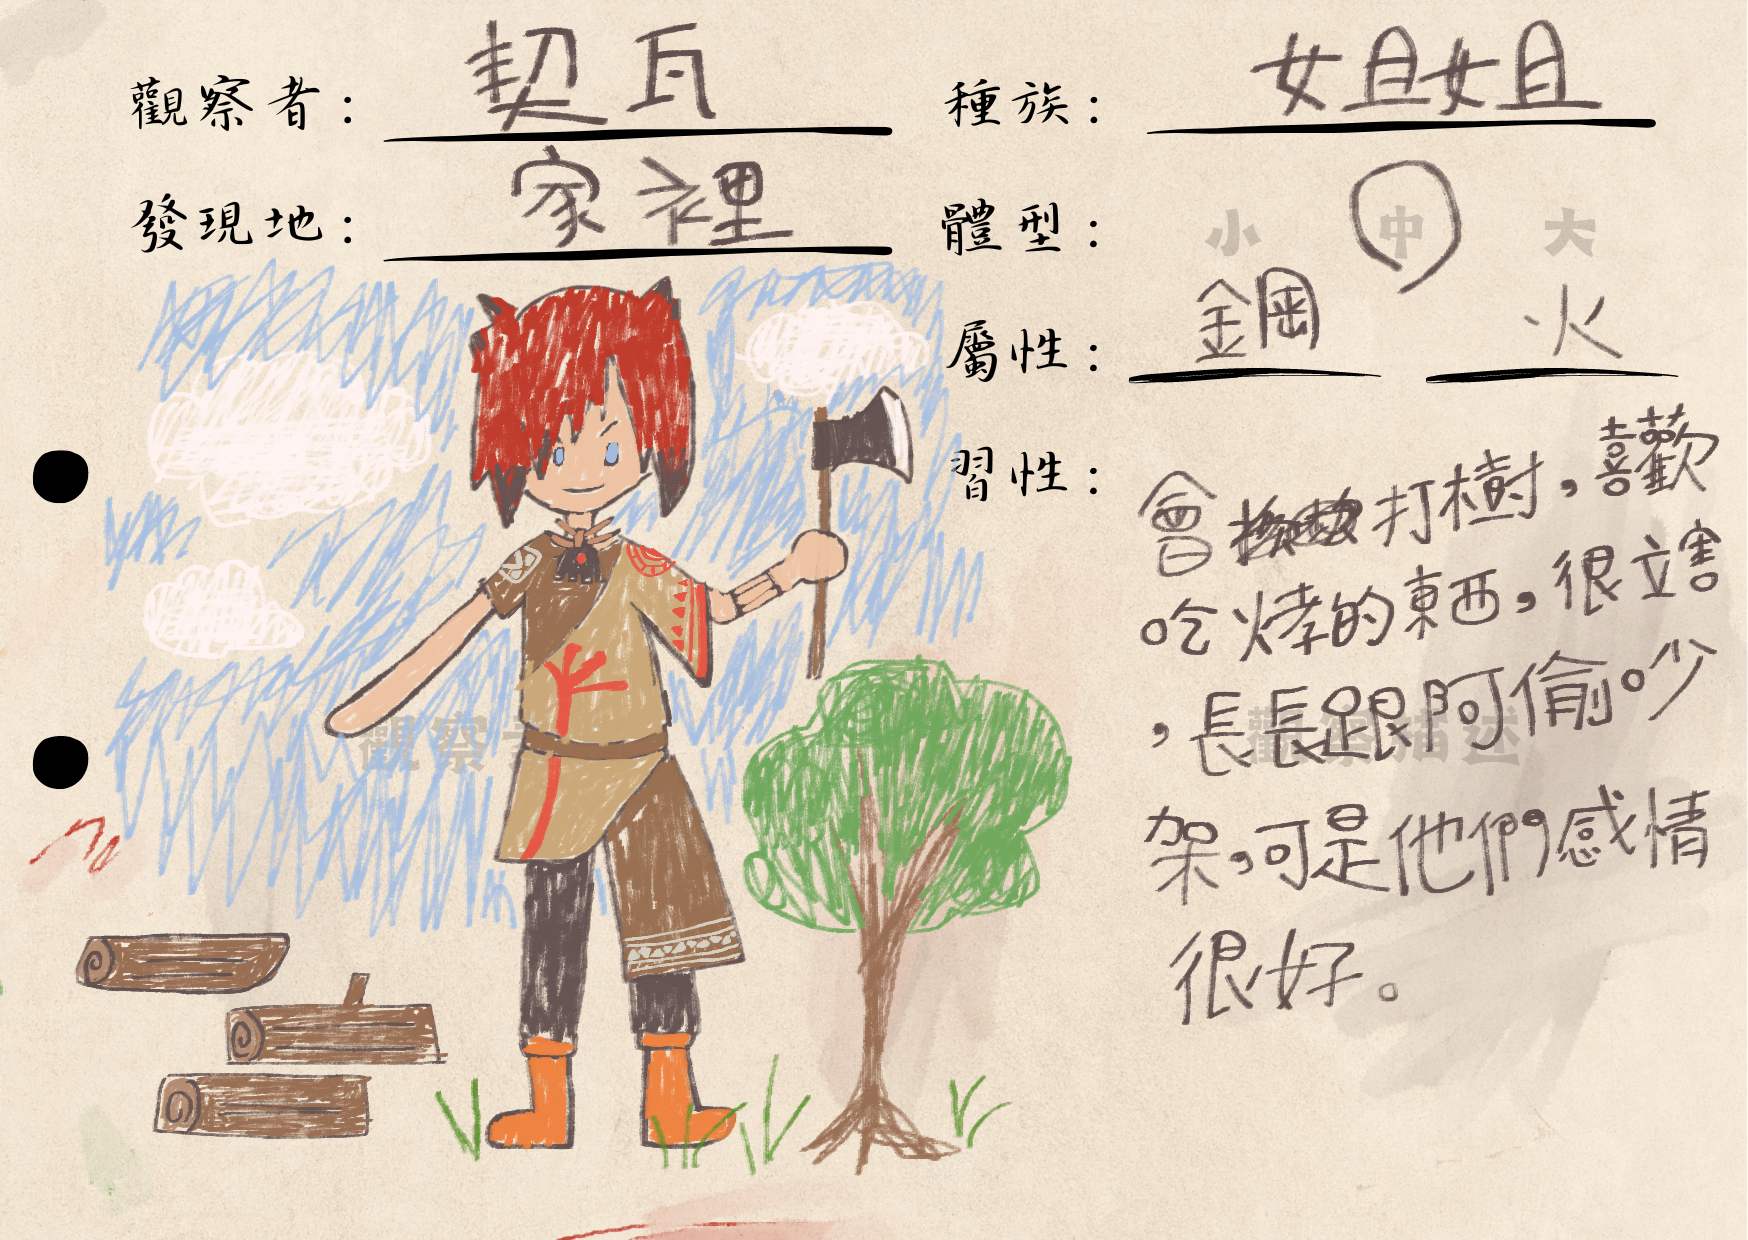 觀察者：契瓦
種族：姐姐
發現地：家裡
體型：小 中 大
屬性：鋼 火
習性：
會打樹，喜歡
吃烤的東西，很立害
，長長跟阿偷吵
架，可是他們感情
很好。
觀察描述